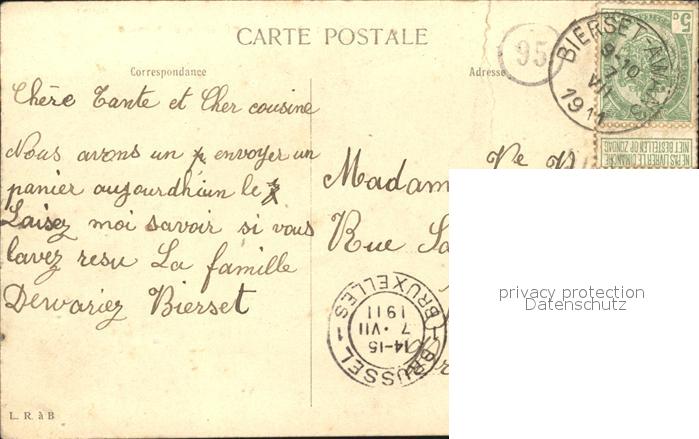 CARTE POSTALE
95
BIERSET-AWANS
9-10
7
VII
1911
5 c
NE PAS LIVRER LE DIMANCHE
NIET BESTELLEN OP ZONDAG
Correspondance
Adresse
Chère Tante et Cher cousine
Nous avons un envoyer un
panier aujourdhiun le
Laisez moi savoir si vous
lavez resu La famille
Dewariez Bierset
Madam Ve
Rue
privacy protection
Datenschutz
BRUXELLES 1
1911
7 · VII
14-15
BRUSSEL 1
L. R. à B